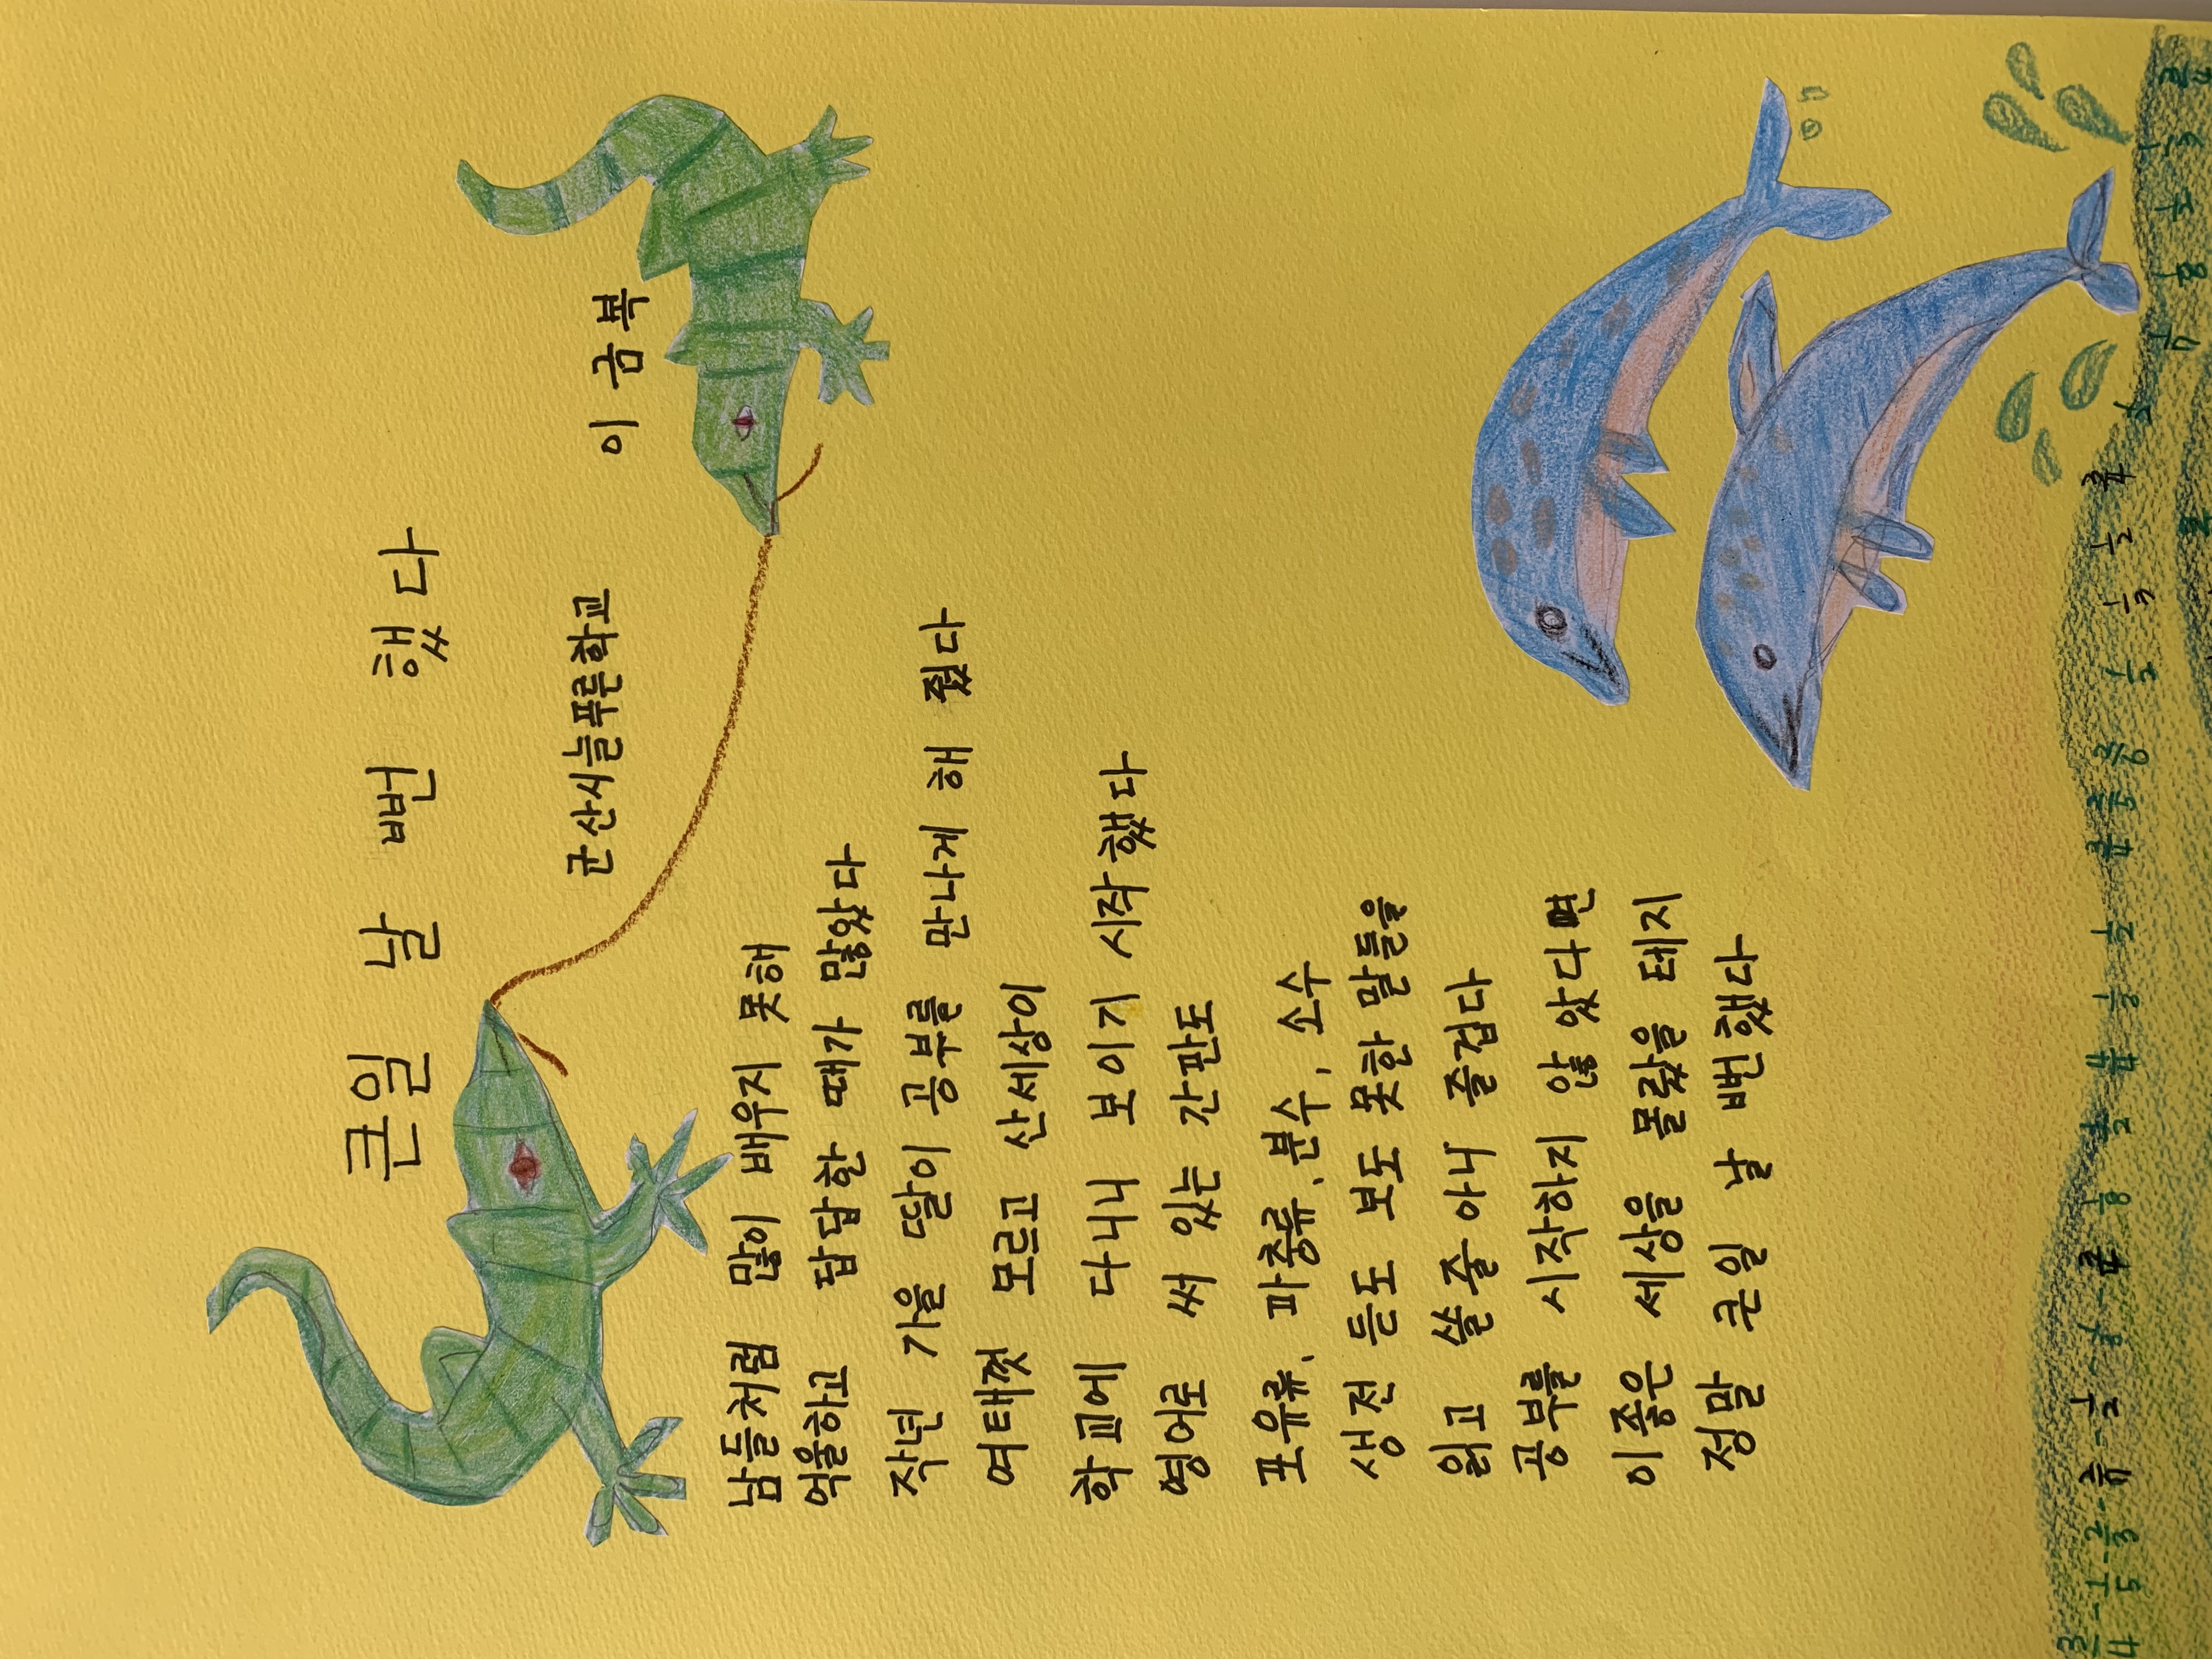 큰일 날 뻔 했다
군산시늘푸른학교
이금복
남들처럼 많이 배우지 못해
억울하고 답답한 때가 많았다
작년 가을 딸이 공부를 만나게 해 줬다
여태껏 모르고 산세상이
학교에 다니니 보이기 시작했다
영어로 써 있는 간판도
포유류, 파충류, 분수, 소수
생전 듣도 보도 못한 말들을
읽고 쓸줄 아니 즐겁다
공부를 시작하지 않았다면
이좋은 세상을 몰랐을 테지
정말 큰일 날 뻔했다